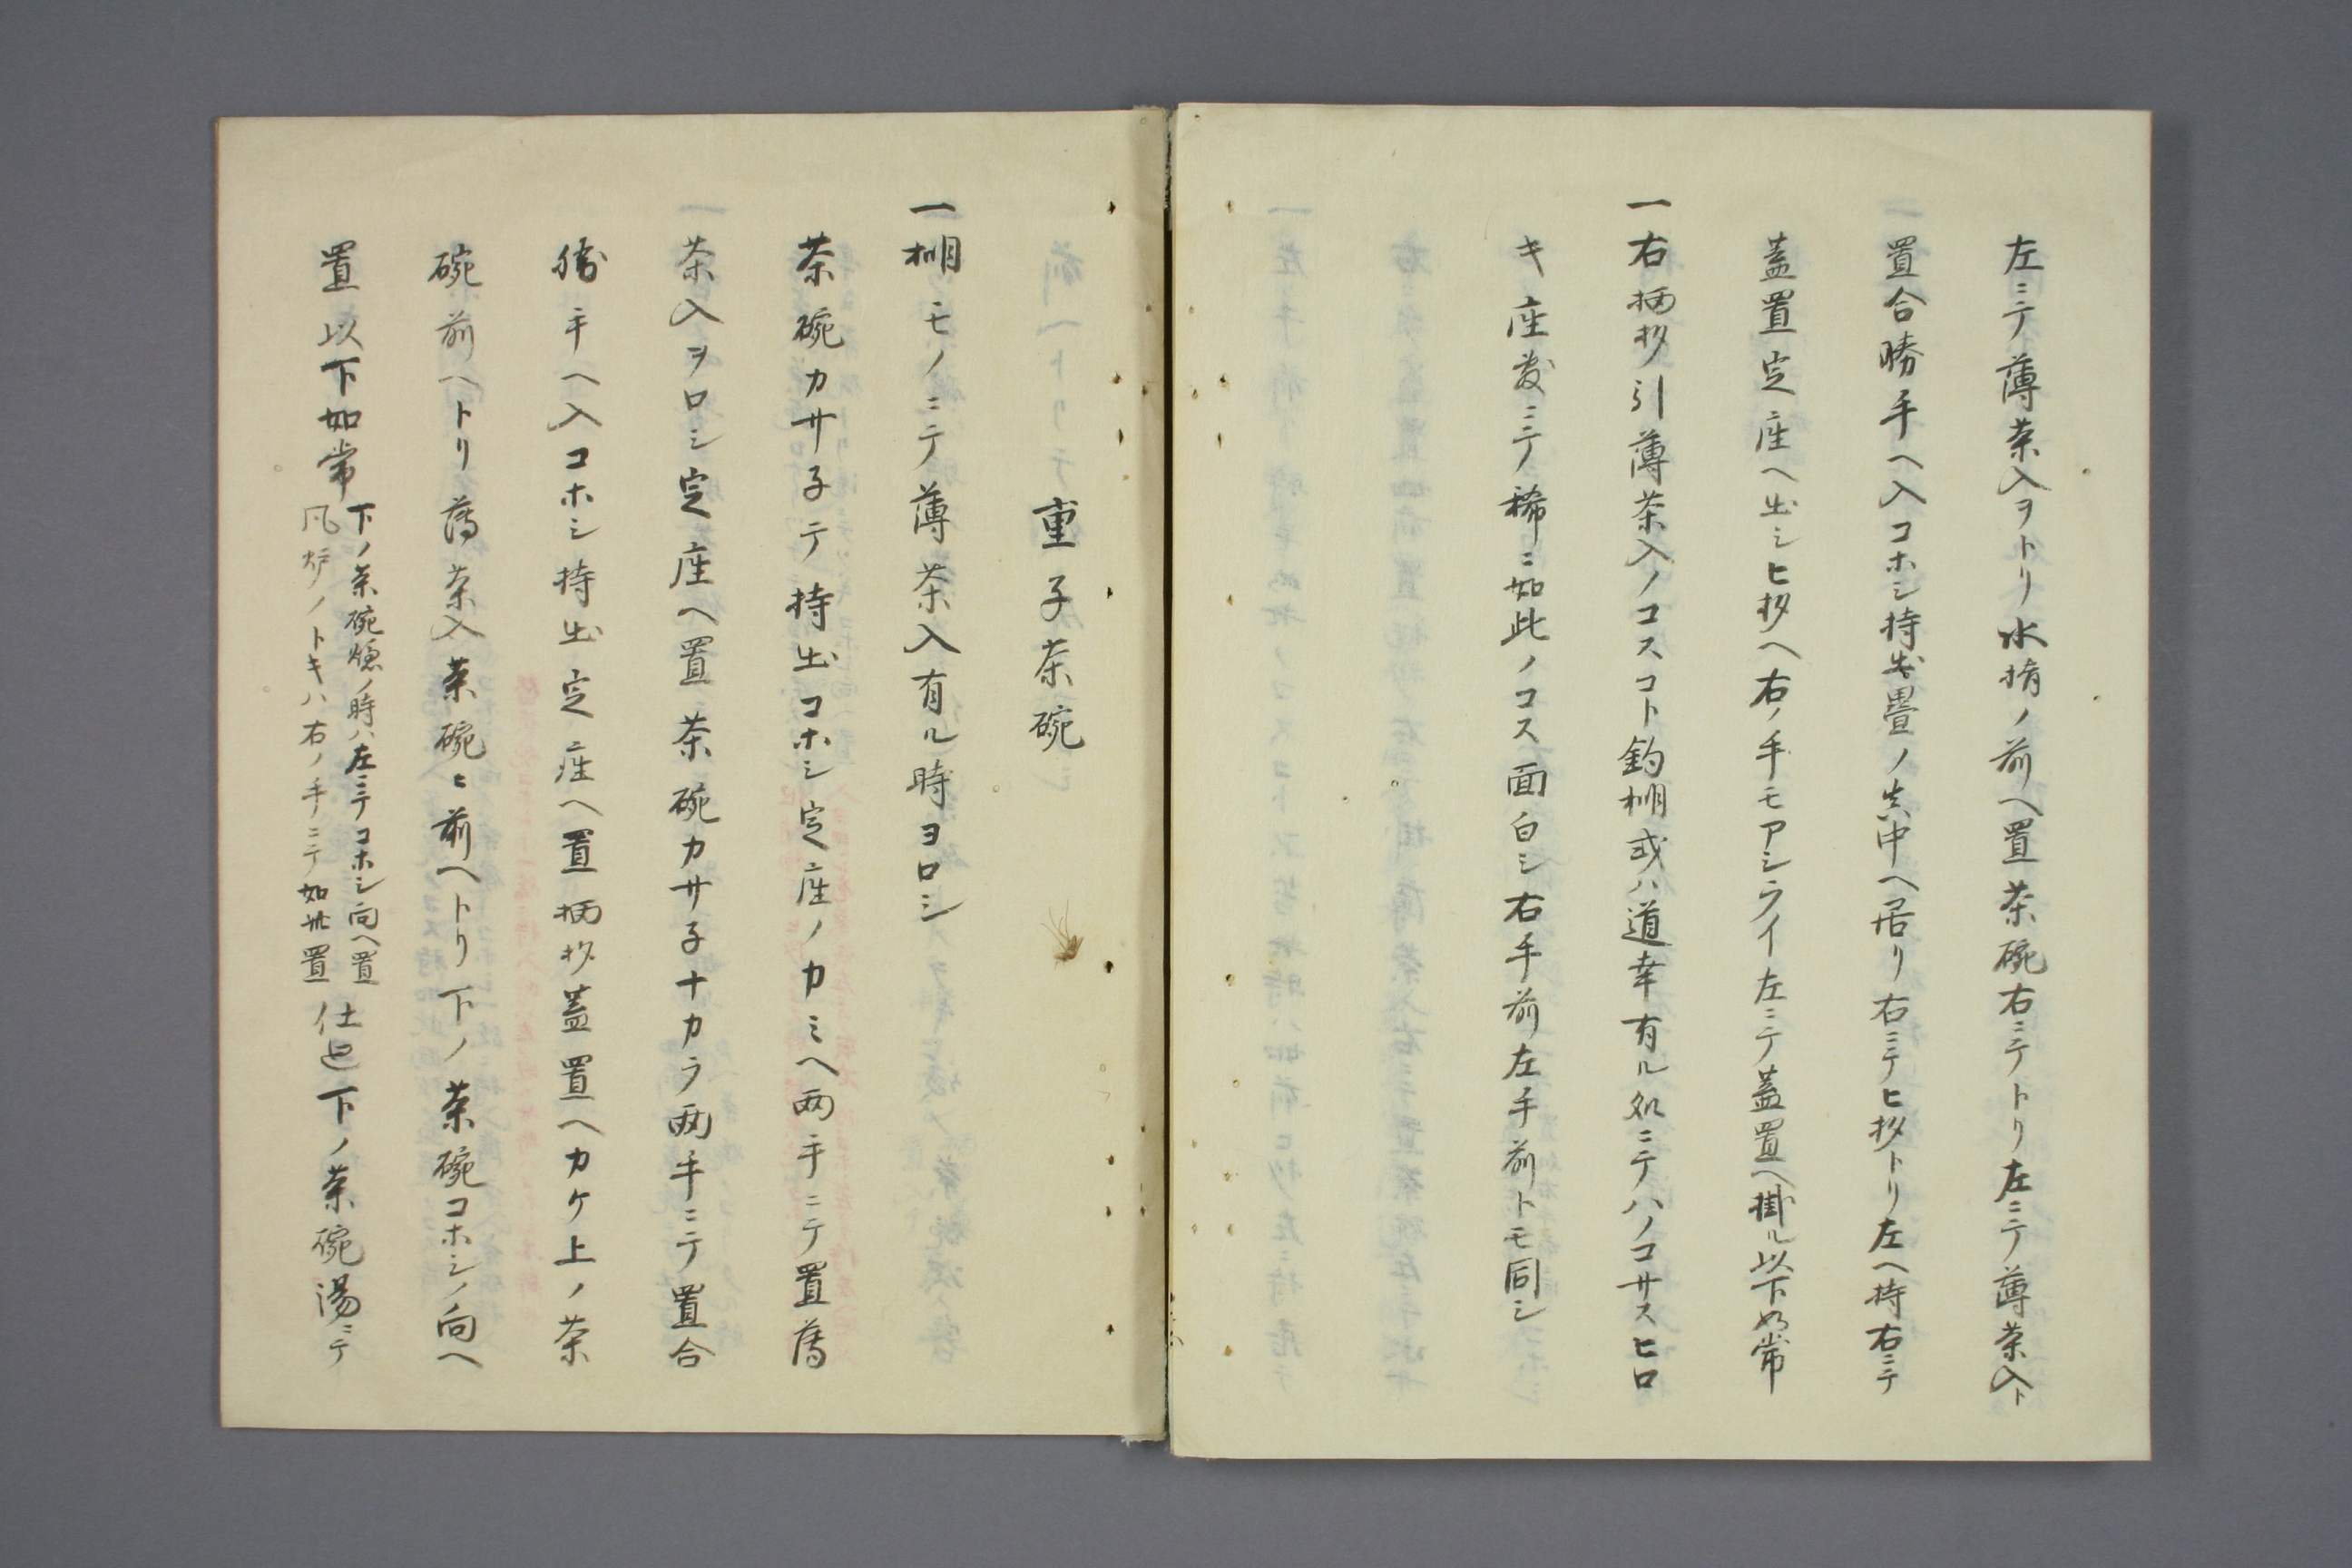 左ニテ薄茶入ヲトリ水指ノ前ヘ置茶碗右ニテトリ左ニテ薄茶入ト
置合勝手ヘ入コホシ持出畳ノ真中ヘ居リ右ニテヒ杓トリ左ヘ持右ニテ
蓋置定座ヘ出シヒ杓ヘ右ノ手モアシライ左ニテ蓋置ヘ掛ル以下如常
一右柄杓引薄茶入ノコスコト釣棚或ハ道幸有ル処ニテハノコサスヒロ
キ座敷ニテ稀ニ如此ノコス面白シ右手前左手前トモ同シ
重子茶碗
一棚モノニテ薄茶入有ル時ヨロシ
茶碗カサ子テ持出コホシ定座ノカミヘ両手ニテ置薄
茶入ヲロシ定座ヘ置茶碗カサ子ナカラ両手ニテ置合
勝手ヘ入コホシ持出定座ヘ置柄杓蓋置ヘカケ上ノ茶
碗前ヘトリ薄茶入茶碗ト前ヘトリ下ノ茶碗コホシノ向ヘ
置以下如常
下ノ茶碗炉ノ時ハ左ニテコホシ向ヘ置
風炉ノトキハ右ノ手ニテ如此置
仕廻下ノ茶碗湯ニテ